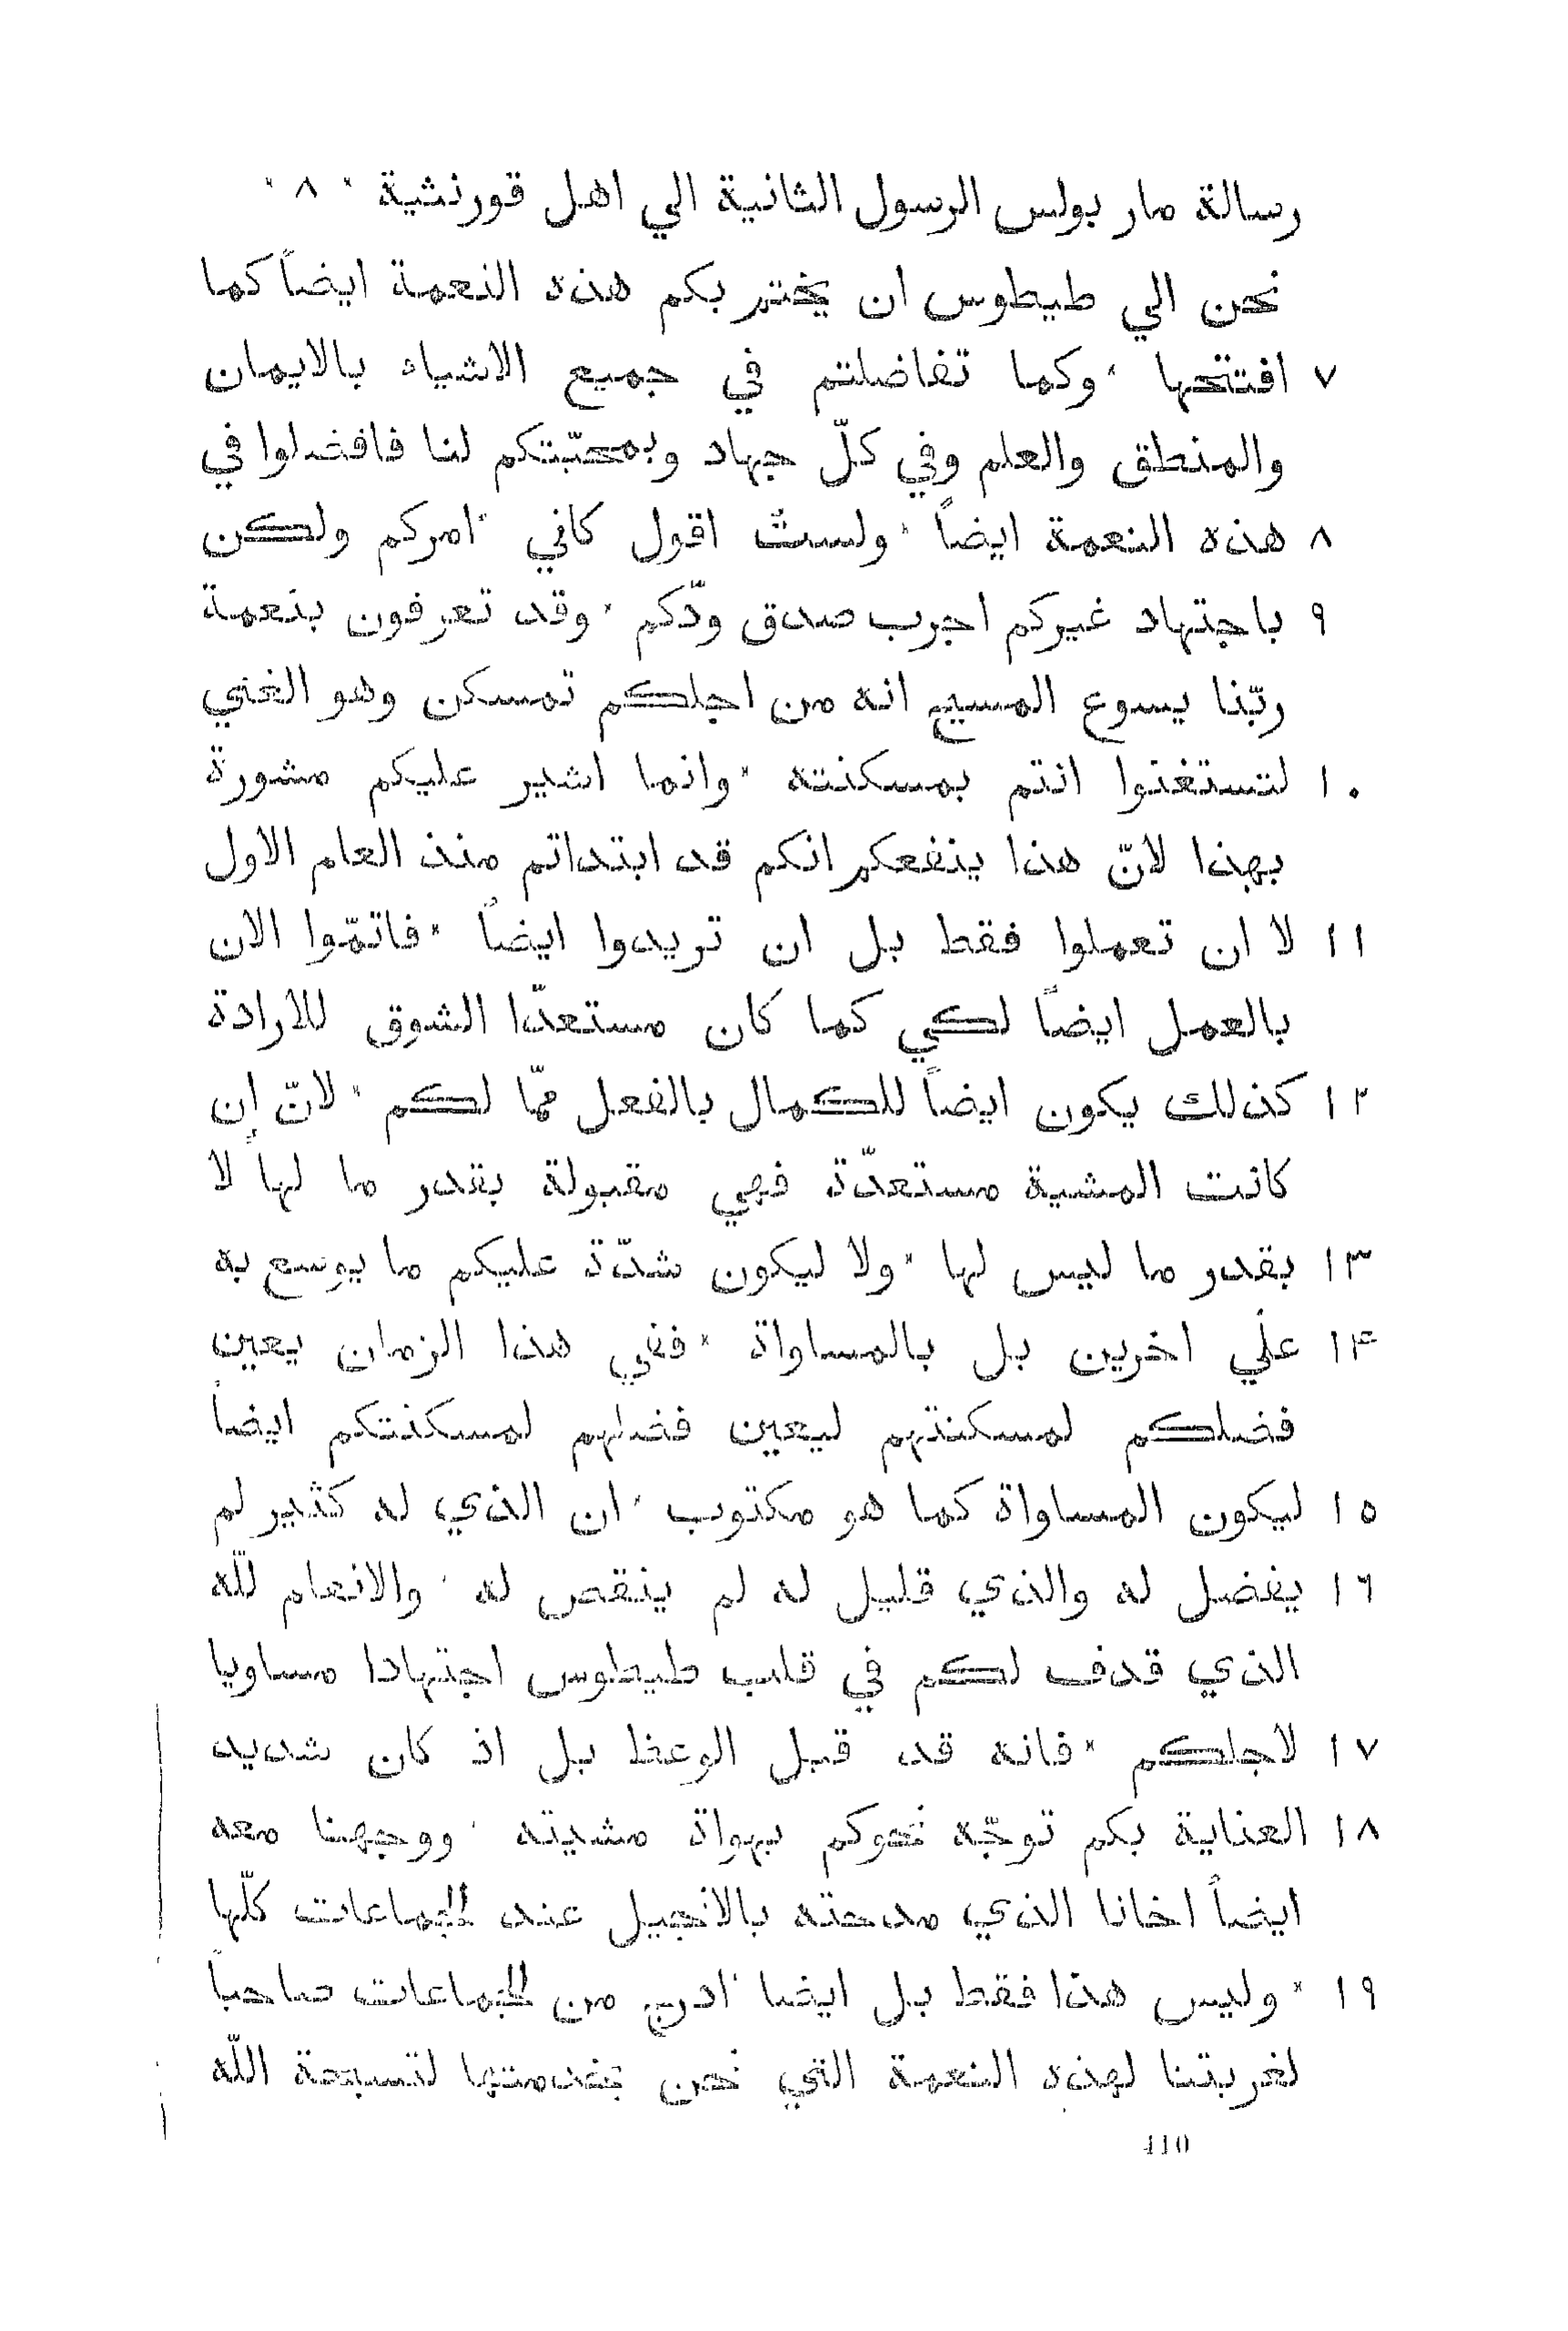 رسالة مار بولس الرسول الثانية الي اهل قورنثية * ٨ *
نحن الي طيطوس ان يختم بكم هذه النعمة ايضاً كما
٧ افتتحها * وكما تفاضلتم في جميع الاشياء بالايمان
والمنطق والعلم وفي كلّ جهاد وبمحبّتكم لنا فافضلوا في
٨ هذه النعمة ايضاً * ولستُ اقول كاني امركم ولكن
٩ باجتهاد غيركم اجرب صدق ودّكم * وقد تعرفون بنعمة
ربّنا يسوع المسيح انه من اجلكم تمسكن وهو الغني
١٠ لتستغنوا انتم بمسكنته * وانما اشير عليكم مشورة
بهذا لانّ هذا ينفعكم انكم قد ابتداتم منذ العام الاول
١١ لا ان تعملوا فقط بل ان تريدوا ايضاً * فاتمّوا الان
بالعمل ايضاً لكي كما كان مستعدّا الشوق للارادة
١٢ كذلك يكون ايضاً للكمال بالفعل ممّا لكم * لانّ إن
كانت المشية مستعدّة فهي مقبولة بقدر ما لها لا
١٣ بقدر ما ليس لها * ولا ليكون شدّة عليكم ما يوسع به
١٤ علي اخرين بل بالمساواة * ففي هذا الزمان يعين
فضلكم لمسكنتهم ليعين فضلهم لمسكنتكم ايضاً
١٥ ليكون المساواة كما هو مكتوب * ان الذي له كثير لم
١٦ يفضل له والذي قليل له لم ينقص له * والانعام للّه
الذي قدف لكم في قلب طيطوس اجتهادا مساويا
١٧ لاجلكم * فانه قد قبل الوعظ بل اذ كان شديد
١٨ العناية بكم توجّه نحوكم بهواة مشيته * ووجهنا معه
ايضاً اخانا الذي مدحته بالانجيل عند الجماعات كلّها
١٩ * وليس هذا فقط بل ايضا ادرج من الجماعات صاحباً
لغربتنا لهذه النعمة التي نحن بخدمتها لتسبحة اللّه
410